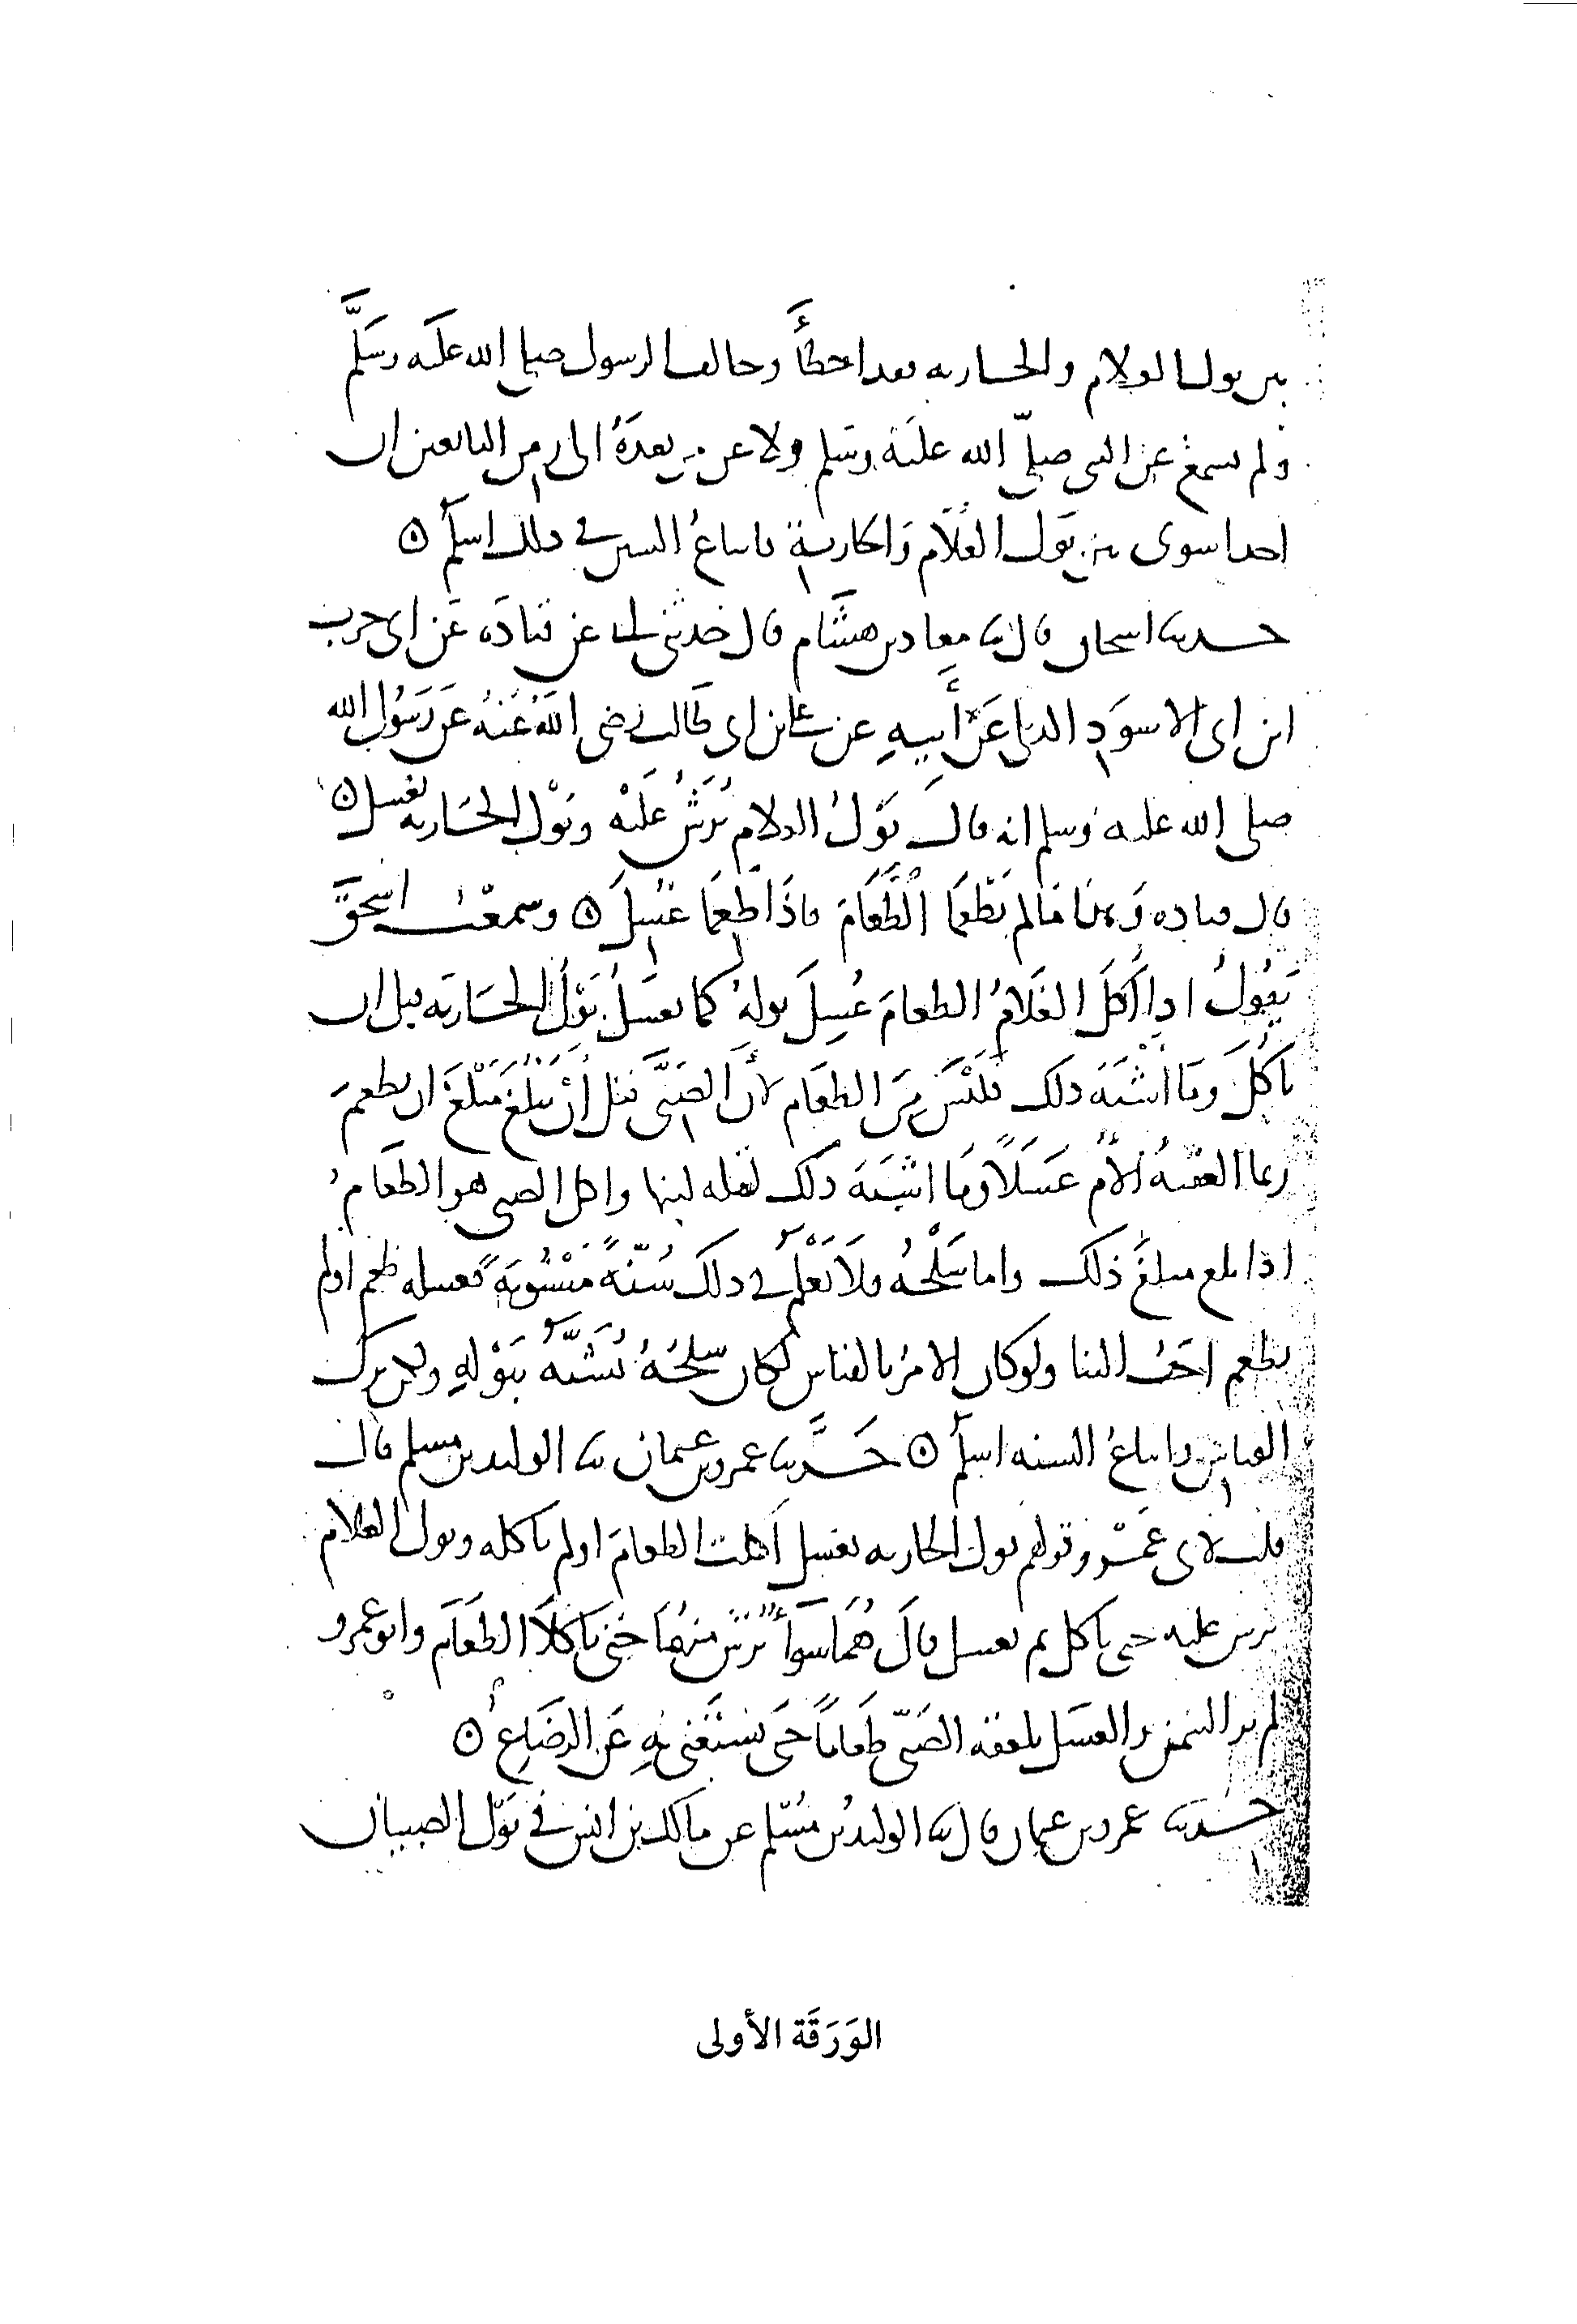 بين بول الغلام والجارية فقد اخطأ وخالف الرسول صلى الله عليه وسلَّم
ولم نسمع عن النبي صلّى الله عليه وسلم ولا عن من بعده الى زمن التابعين ان
احدا سوى بين بول الغلام والجارية فاتباع السنن في ذلك اسلم ۞
حدثنا اسحاق قال ثنا معاذ بن هشام قال حدثني ابي عن قتادة عن ابي حرب
ابن ابي الاسود الديلي عن أبيهِ عن علي بن ابي طالب رضي الله عنه عن رسول الله
صلى الله عليه وسلم انه قال بول الغلام يُرشُّ عليه وبول الجارية يغسل ۞
قال قتادة وهذا ما لم يطعما الطَّعام فاذا طعما غسلَ ۞ وسمعت اسحق
يقولُ اذا أكل الغلامُ الطعامَ غُسِلَ بوله كما يغسل بول الجارية قبل ان
تأكل وما اشبه ذلك فليس من الطعام لأن الصبيَّ قبل أن يبلغ مبلغ ان يطعمَ
ربما العقته الأم عسلًا وما اشبه ذلك لقلة لبنها واكل الصبي هو الطعامُ
اذا بلغ مبلغ ذلك واما سَلْحُهُ فلا نعلم في ذلك سُنّةً مَسْنُونَةً فغسله طعم اولم
يطعم احبُّ الينا ولو كان الامر بالقياس لكان سلحه يُشَبَّهُ ببولِهِ ولكن ترك
القياس واتباع السنة اسلم ۞ حدَّثنا عمرو بن عثمان ثنا الوليد بن مسلم قال
قلت لابي عمرو قولهم بول الجارية يغسل اكلت الطعام اولم تاكله وبول الغلام
يرش عليه حتى ياكل ثم يغسل قال هُمَا سَوَاءٌ يُرَشُّ منهُمَا حتى ياكلا الطعام وابو عمرو
لم ير السمن والعسل يلعقه الصَبيّ طَعامًا حتى يستغني به عن الرضَاعِ ۞
حدثنا عمرو بن عثمان قال ثنا الوليد بن مُسْلم عن مالك بن انس في بول الصبيان
الوَرَقَة الأولى